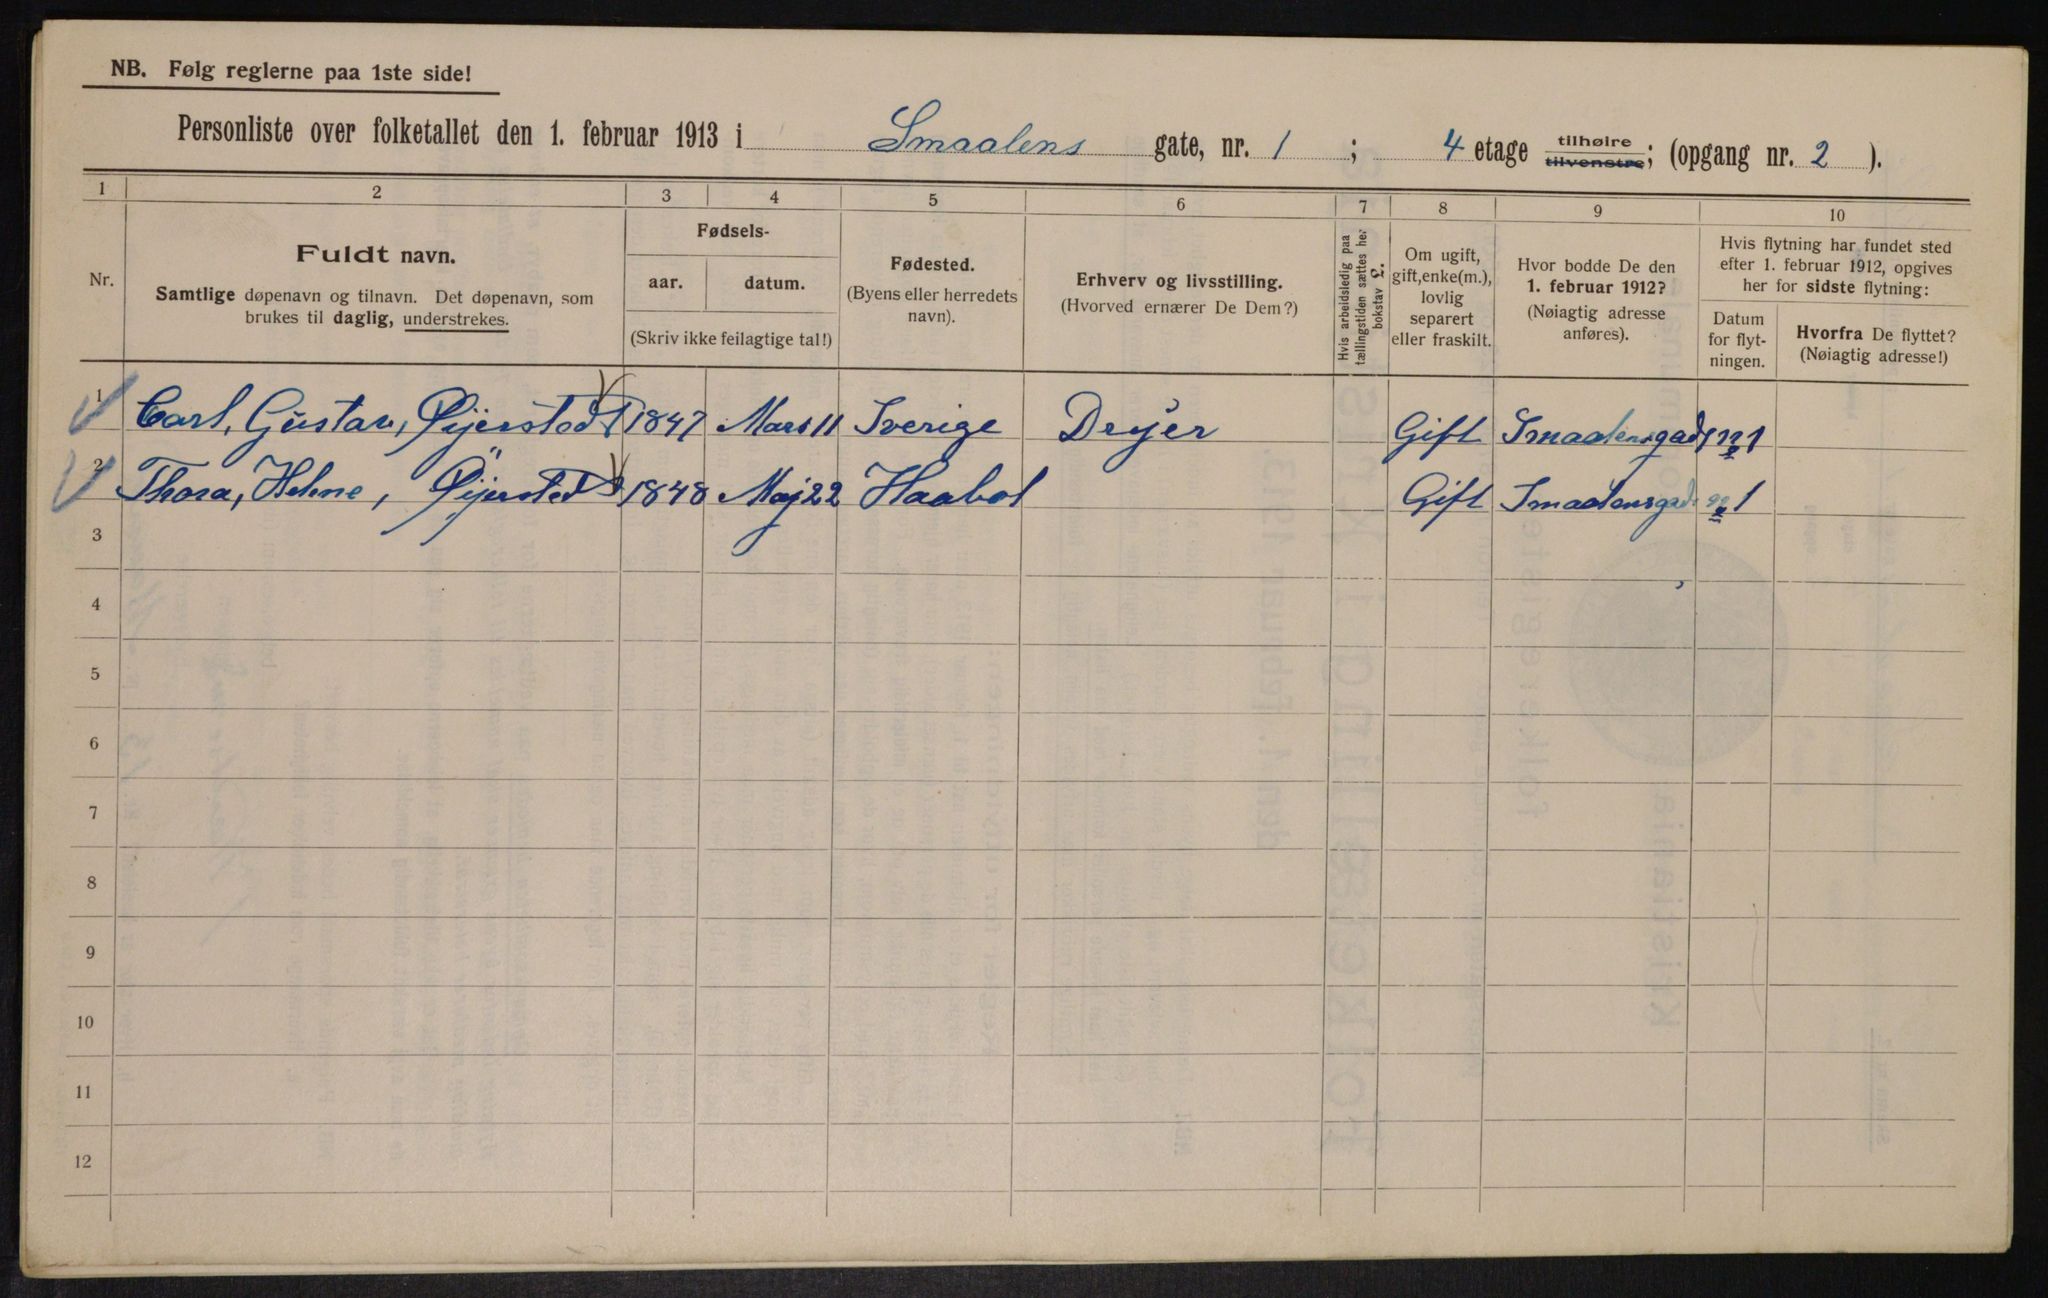 NB. Følg reglerne paa 1ste side!
Personliste over folketallet den 1. februar 1913 i Smaalens gate, nr. 1 ; 4 etage tilhøire tilvenstre; (opgang nr. 2 ).
1 2 3 4 5 6 7 8 9 10
Nr.
Fuldt navn.
Samtlige døpenavn og tilnavn. Det døpenavn, som
brukes til daglig, understrekes.
Fødsels-
aar. datum.
(Skriv ikke feilagtige tal!)
Fødested.
(Byens eller herredets
navn).
Erhverv og livsstilling.
(Hvorved ernærer De Dem?)
Hvis arbeidsledig paa
tællingstiden sættes her
bokstav
Om ugift,
gift, enke(m.),
lovlig
separert
eller fraskilt.
Hvor bodde De den
1. februar 1912?
(Nøiagtig adresse
anføres).
Hvis flytning har fundet sted
efter 1. februar 1912, opgives
her for sidste flytning:
Datum
for flyt-
ningen.
Hvorfra De flyttet?
(Nøiagtig adresse!)
1 Carl, Gustav, Øijersted 1847 Mars 11 Sverige Dryer Gift Smaalensgad 1
2 Thora, Helene, Øijersted 1848 Maj 22 Haabøl Gift Smaalensgad 1
3
4
5
6
7
8
9
10
11
12